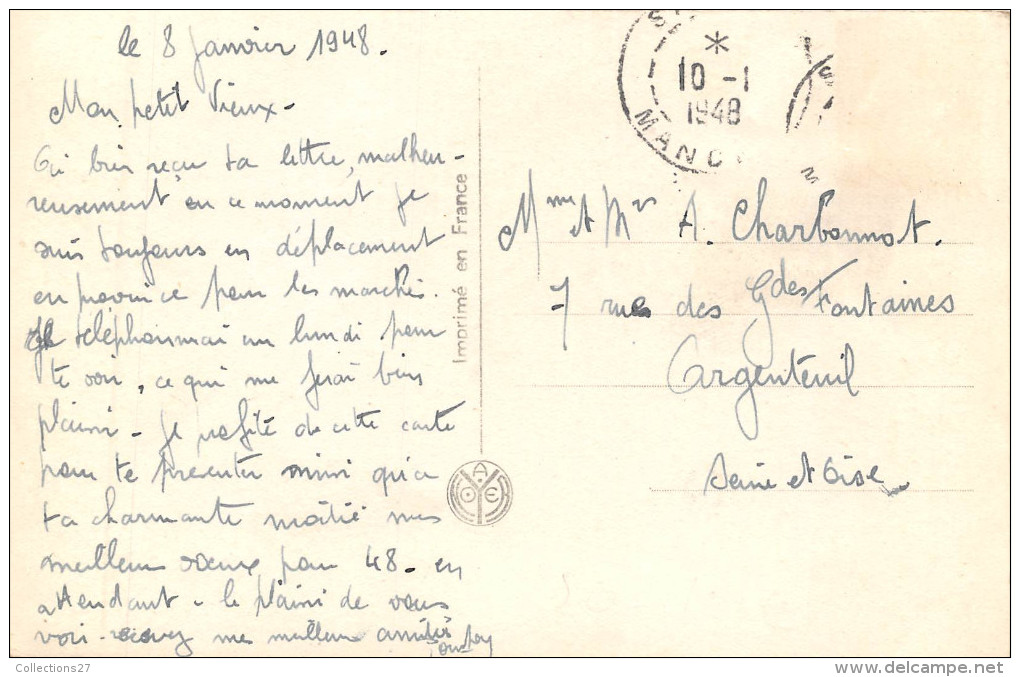 le 8 Janvier 1948.
Mon petit Vieux -
Ai bien reçu ta lettre, malheu-
reusement en ce moment je
suis toujours en déplacement
en province pour les marchés.
Je téléphonerai un lundi pour
te voir, ce qui me ferai bien
plaisir - Je profite de cette carte
pour te presenter ainsi qu'a
ta charmante moitié mes
meilleurs voeux pour 48 - en
attendant - le plaisir de vous
voir - recevez mes meilleures amitiés
Imprimé en France
* 10 -1
1948
Mme et Mr A. Charbonnot.
7 rue des Gdes Fontaines
Argenteuil
Seine et Oise
Collections27
delcampe.net